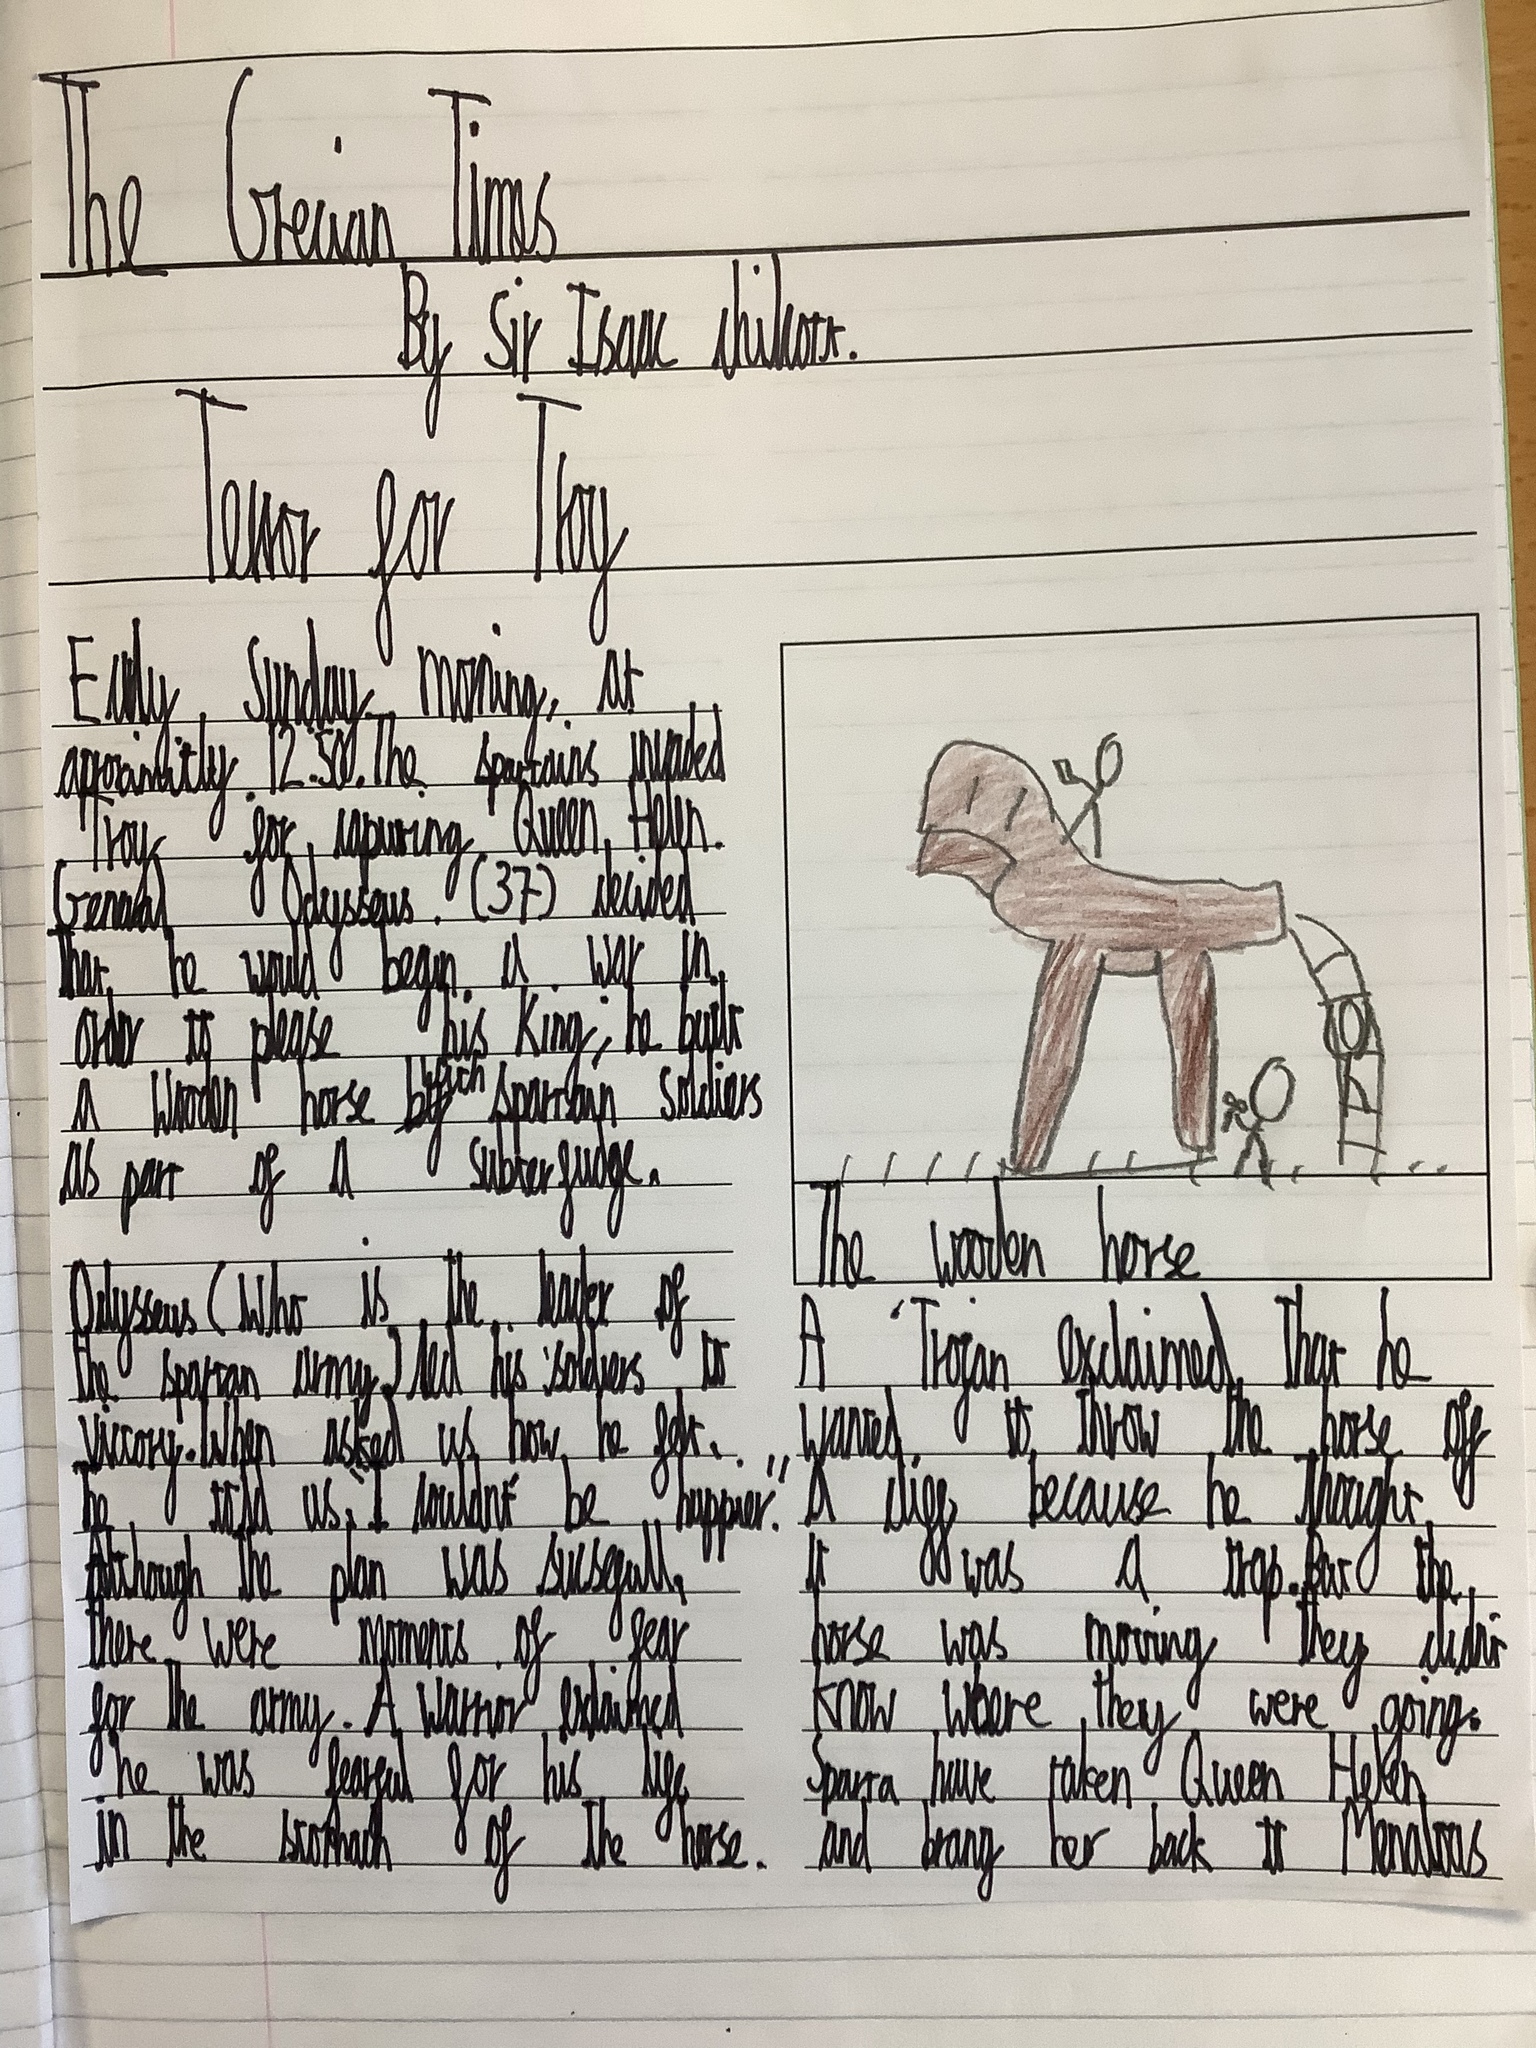 The Grecian Times
By Sir Isaac chilcott.
Terror for Troy
Early Sunday morning, at
approximitly 12:50. The spartains invaded
Troy for capuring Queen Helen.
General Odysseus (37) decided
that he would begin a war in
order to please his King; he built
a wooden horse with spartan soldiers
as part of a subterfudge.
Odysseus (who is the leader of
the spartan army) led his soldiers to
victory. When asked us how he felt.
he told us, "I couldn't be happier."
Although the plan was sucsefull,
there were moments of fear
for the army. A warrior exclaimed
he was fearful for his life
in the stomach of the horse.
The wooden horse
A Trojan exclaimed that he
wanted to throw the horse off
A cliff because he thought
it was a trap. But the
horse was moving they didn't
know where they were going.
Sparta have taken Queen Helen
and brang her back to Menalaos